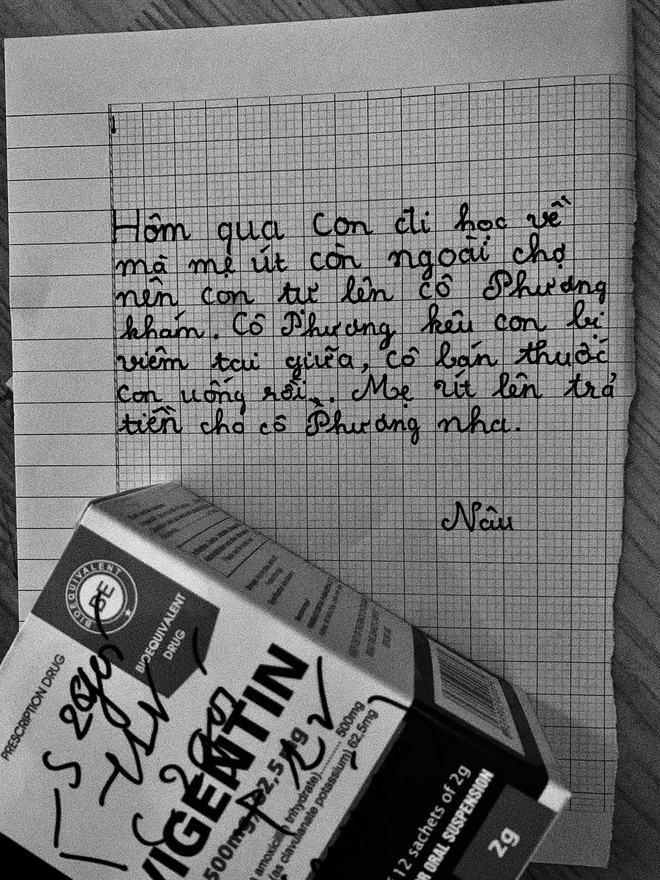 Hôm qua con đi học về
mà mẹ út còn ngoài chợ
nên con tự lên cô Phương
khám. Cô Phương kêu con bị
viêm tai giữa, cô bán thuốc
con uống rồi. Mẹ út lên trả
tiền cho cô Phương nha.
Nâu
BIOEQUIVALENT
BE
BIOEQUIVALENT
DRUG
PRESCRIPTION DRUG
VIGENTIN
500mg/62,5mg
amoxicilin trihydrate) 500mg
(as clavulanate potassium) 62.5mg
12 sachets of 2g
R ORAL SUSPENSION
2g